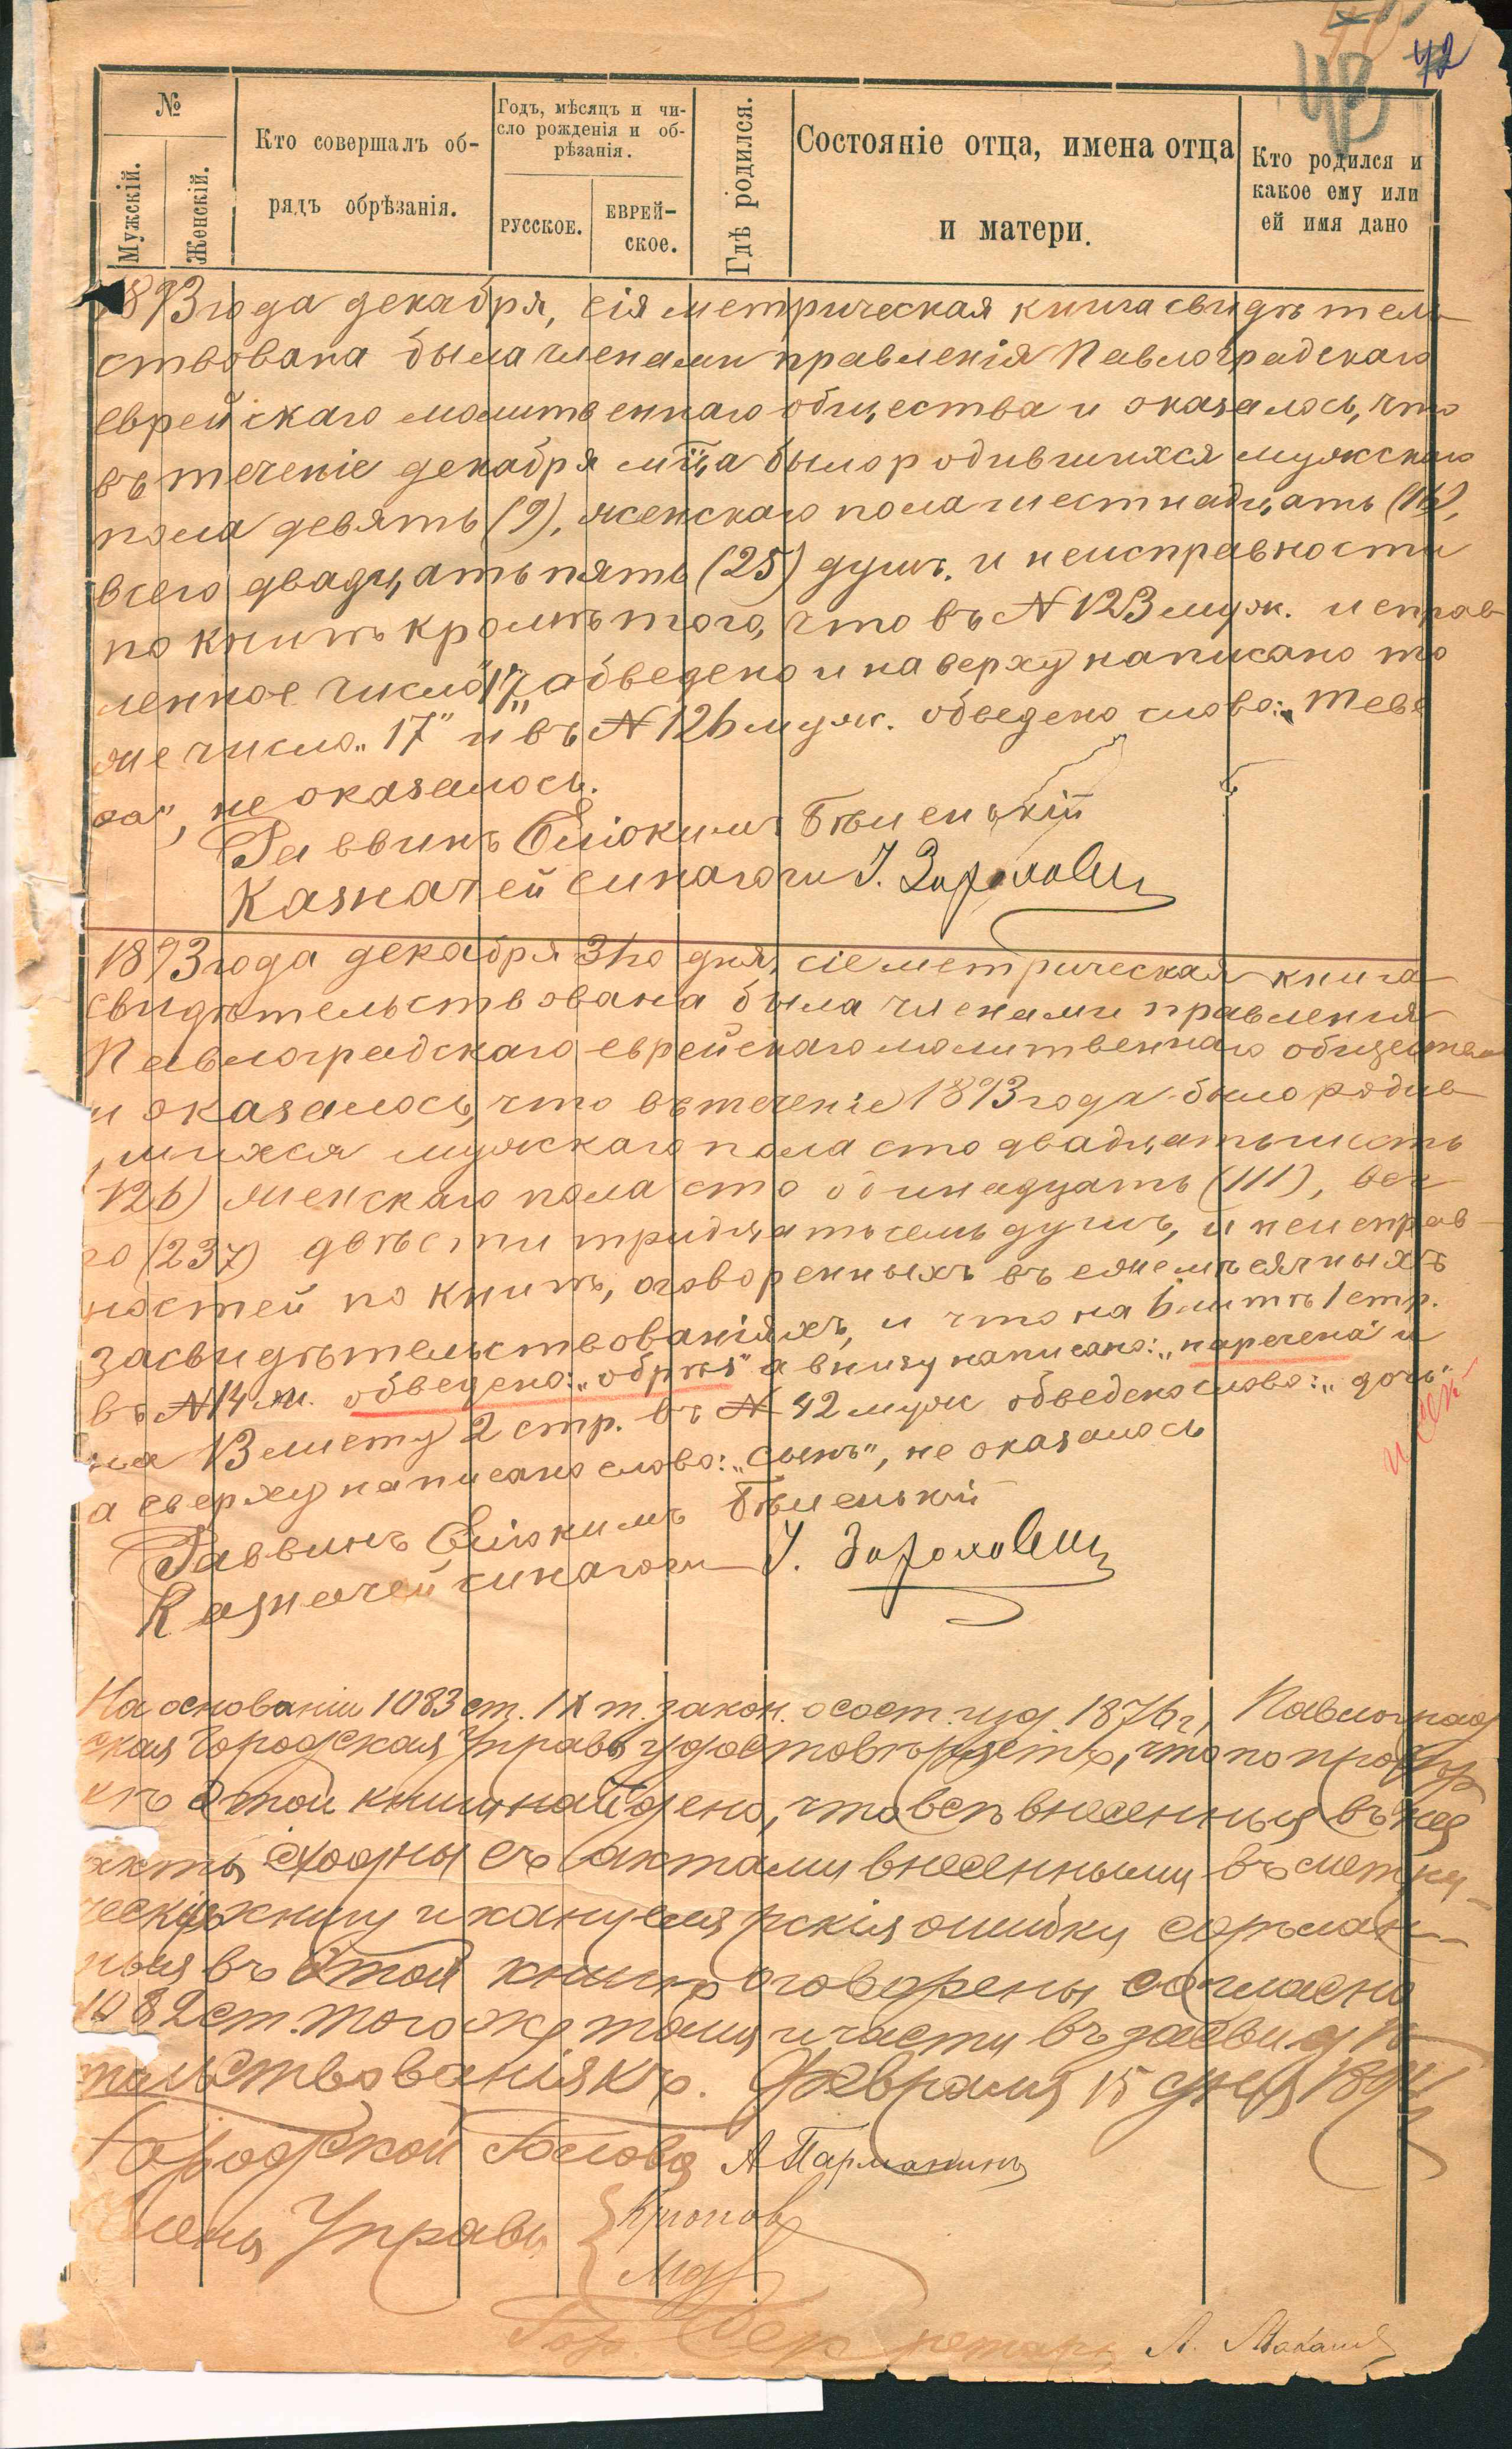 42
№
Мужскій.
Женскій.
Кто совершалъ об-
рядъ обрѣзанія.
Годъ, мѣсяцъ и чи-
сло рожденія и об-
рѣзанія.
РУССКОЕ.
ЕВРЕЙ-
СКОЕ.
Гдѣ родился.
Состояніе отца, имена отца
и матери.
Кто родился и
какое ему или
ей имя дано
1893 года декабря, сія метрическая книга свидѣтель
ствована была членами правленія Павлоградскаго
еврейскаго молитвеннаго общества и оказалось, что
въ теченіе декабря мца было родившихся мужскаго
пола девять (9), женскаго пола шестнадцать (16),
всего двадцать пять (25) душъ. и неисправности
по книгѣ кромѣ того, что въ № 123 муж. исправ
ленное число „17„ обведено и наверху написано то
же число „17" и въ № 126 муж. обведено слово: „Теве
са", не оказалось.
Раввинъ Еліокимъ Бѣленькій
Казначей синагоги
1893 года декабря 31го дня, сіе метрическая книга
свидѣтельствована была членами правленія
Павлоградскаго еврейскаго молитвеннаго общества
и оказалось, что въ теченіе 1893 года было родив
шихся мужскаго пола сто двадцать шесть
126) женскаго пола сто одинадцать (111), все
го (237) двѣсти тридцать семь душъ, и неисправ
ностей по книгѣ, оговоренныхъ въ ежемѣсячныхъ
засвидѣтельствованіяхъ, и что на 6 листѣ 1 стр.
въ № 14 ж. обведено: „обрѣз" а внизу написано: „наречена" и
на 13 листу 2 стр. въ № 42 муж обведено слово: „дочь"
а сверху написано слово: „сынъ", не оказалось
Раввинъ Еліокимъ Бѣленькій
Казначей синагоги
На основаніи 1083 ст. IX т. закон. о сост. изд. 1876 г, Павлоград
ская Городская Управа удостовѣряетъ, что по провѣр
кѣ этой книги найдено, что всѣ внесенныя въ нея
акты сходны съ актами внесенными въ метри-
ческую книгу и канцелярскія ошибки сдѣлан-
ныя въ этой книгѣ оговорены согласно
1082 ст. того же тома и части въ засвидѣ
тельствованіяхъ. Февраля 15 дня 1894
Городской Голова А Парманинъ
Члены Управы
Гор Секретарь